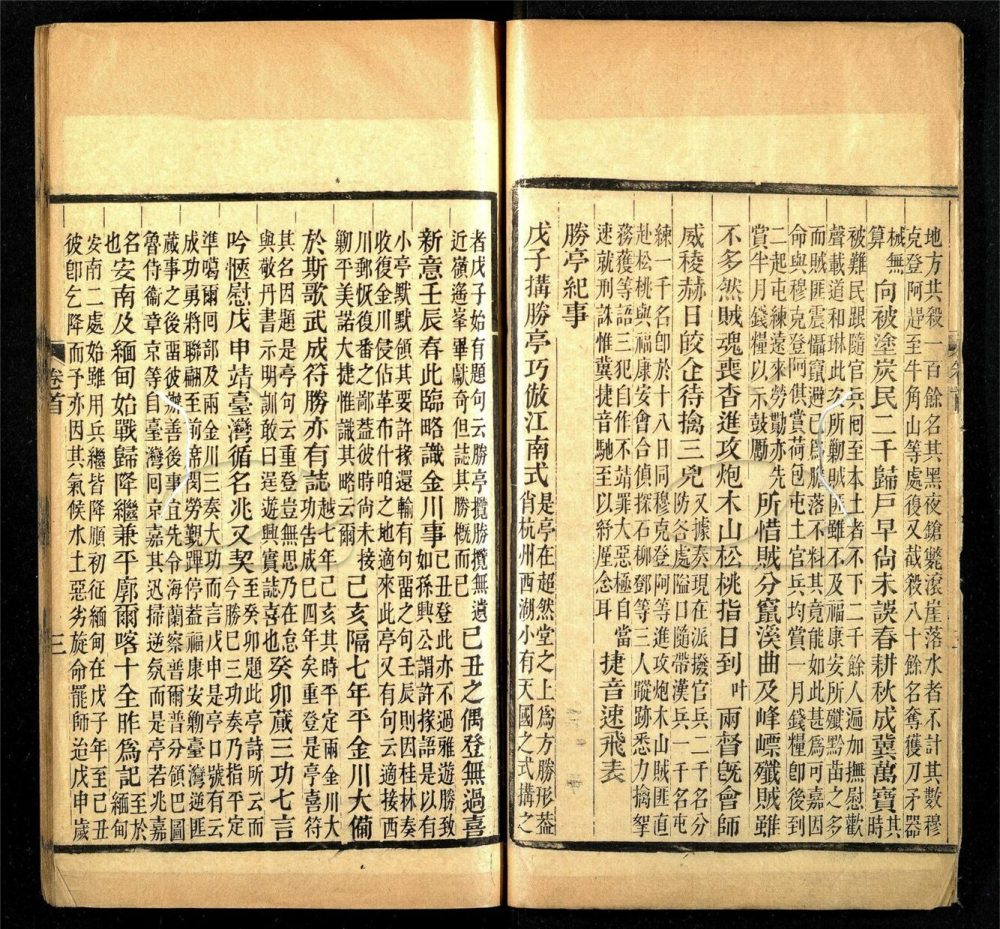 地方共殺一百餘名其黑夜鎗斃滾崖落水者不計其數穆
克登阿趕至牛角山等處後又截殺八十餘名奪獲刀矛器
械無算 向被塗炭民二千歸戶早尚未誤春耕秋成冀萬寶 其時
被難民跟隨官兵囘至本土者不下二千餘人遍加撫慰歡
聲載道和琳此次所勦賊匪雖不及福康安所殲黔苗之多
而賊匪震懾竄避已屬膽落不料其竟能如此甚為可嘉因
命與穆克登阿俱賞荷包屯土官兵均賞一月錢糧卽後到
二起屯練遠來勞勩亦先
賞半月錢糧以示鼓勵 所惜賊分竄溪曲及峰嶂殲賊雖
不多然賊魂喪杳進攻炮木山松桃指日到叶 兩督旣會師
威稜赫日皎企待擒三兇 又據奏現在派撥官兵二千名分
防各處隘口隨帶漢兵一千名屯
練一千名卽於十八日同穆克登阿等進攻炮木山賊匪直
赴松桃與福康安會合偵探石柳鄧等三人蹤跡悉力擒拏
務獲等語三犯自作不靖罪大惡極自當
速就刑誅惟冀捷音馳至以紓厪念耳 捷音速飛表
勝亭紀事
戊子搆勝亭巧倣江南式 是亭在超然堂之上為方勝形葢
肖杭州西湖小有天園之式搆之
者戊子始有題句云勝亭攬勝攬無遺
近嶺遙峯畢獻奇但誌其勝槪而已 己丑之偶登無過喜
新意壬辰春此臨略識金川事 己丑登此亦不過雅遊勝致
如孫興公謂許掾語是以有
小亭默默領其要許掾還輸有句畱之句壬辰則因桂林奏
收復金川侵佔革布什咱之地適來此亭又有句云適接西
川郵恢復番之鄙葢彼時尚未接
勦平美諾大捷惟識其略云爾 己亥隔七年平金川大備
於斯歌武成符勝亦有誌 越七年己亥其時平定兩金川大
功告成已四年矣重登是亭喜符
其名因題是亭句云重登豈無思乃在怠
與敬丹書示明訓敢曰逞遊興實誌也 癸卯蕆三功七言
吟愜慰戊申靖臺灣循名兆又契 至癸卯題此亭詩所云而
今勝已三功奏乃指平定
準噶爾囘部及兩金川三奏大功而言戊申是亭口號有云
成功勇將聯翩至前席閔勞覲蹕停葢福康安勦臺灣逆匪
蕆事之後畱彼辦善後事宜先令海蘭察普爾普分領巴圖
魯侍衞章京等自臺灣囘京嘉其迅掃逆氛而是亭若兆嘉
名也 安南及緬甸始戰歸降繼兼平廓爾喀十全胙為記 至於緬甸
安南二處始雖用兵繼皆降順初征緬甸在戊子年至己丑
彼卽乞降而予亦因其氣候水土惡劣旋命罷師迨戊申歲
卷首
三